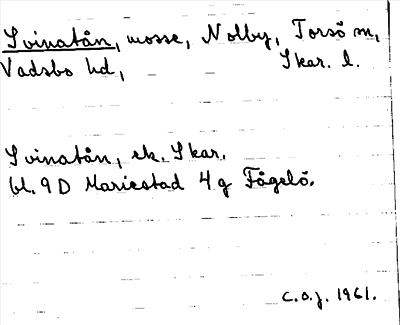 Svinatån, mosse, Nolby, Torsö sn,
Vadsbo hd, Skar. l.
Svinatån, ek. Skar.
bl. 9D Mariestad 4g Fågelö.
c.o.j. 1961.